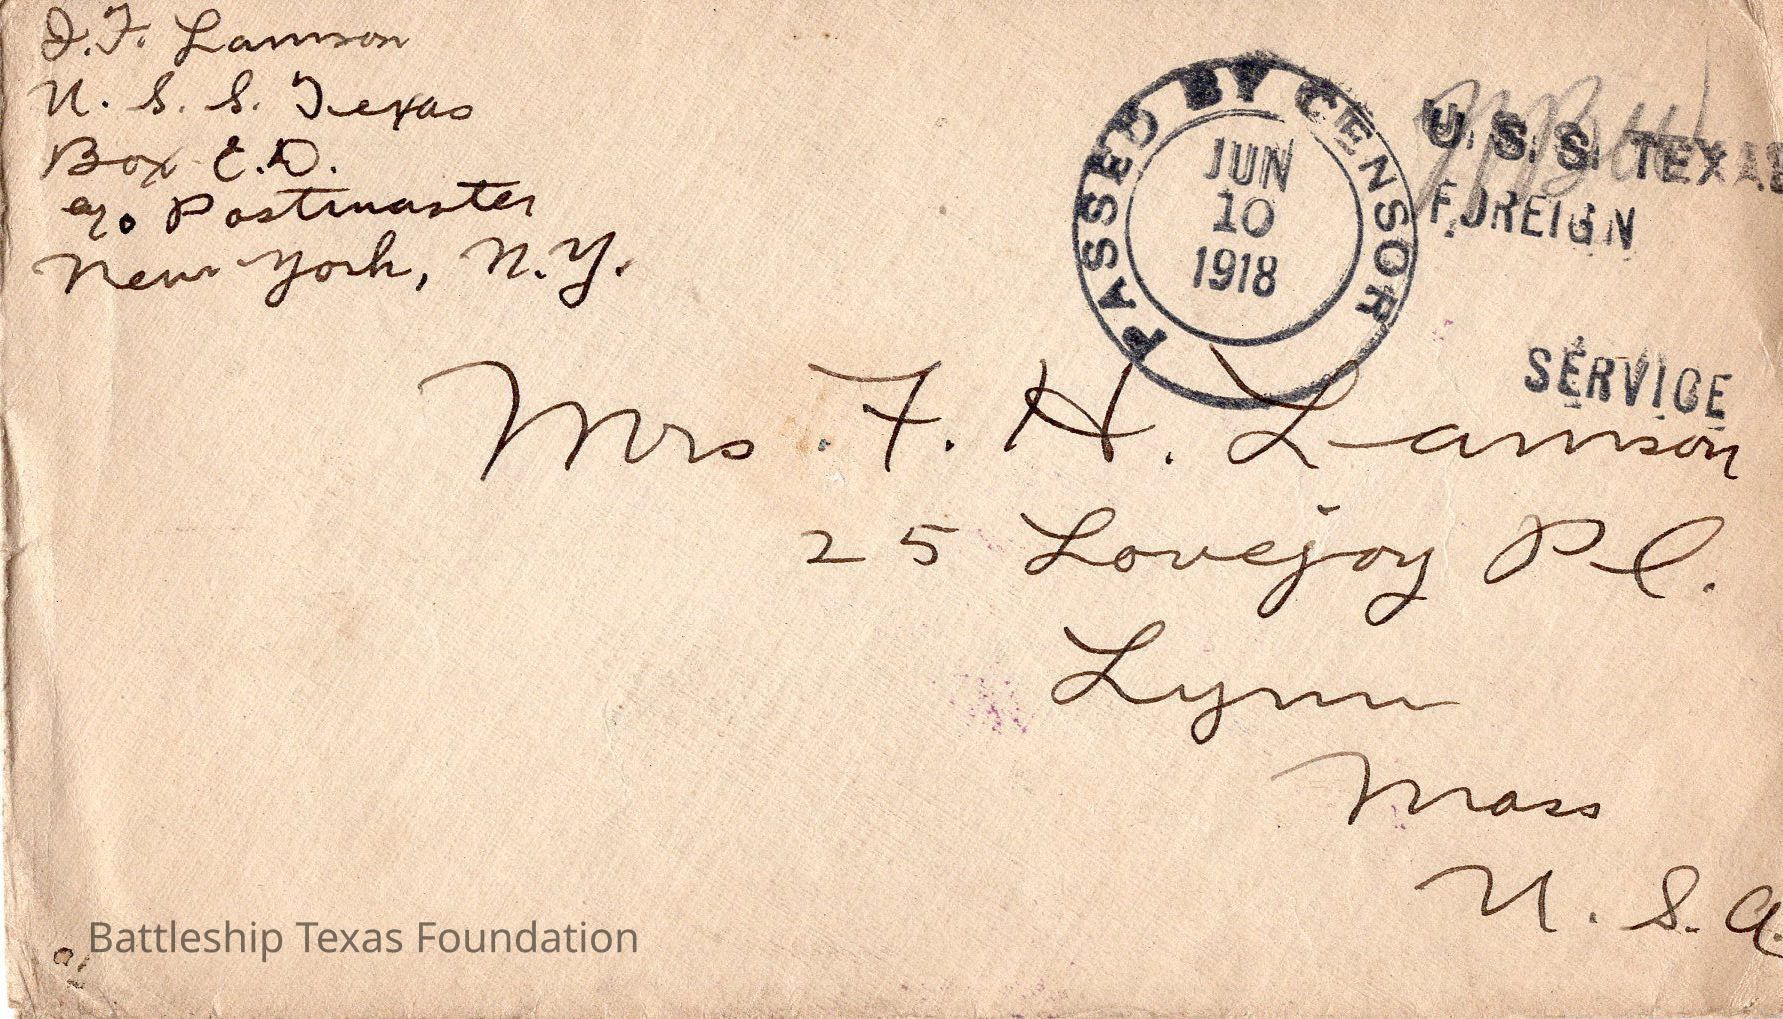 I.F. Lamson
U. S. S. Texas
Box E.D.
c/o Postmaster
New York, N.Y.
PASSED BY CENSOR
JUN
10
1918
U.S.S. TEXAS
FOREIGN
SERVICE
Mrs. F. H. Lamson
25 Lovejoy Pl.
Lynn
Mass
U.S.A.
Battleship Texas Foundation